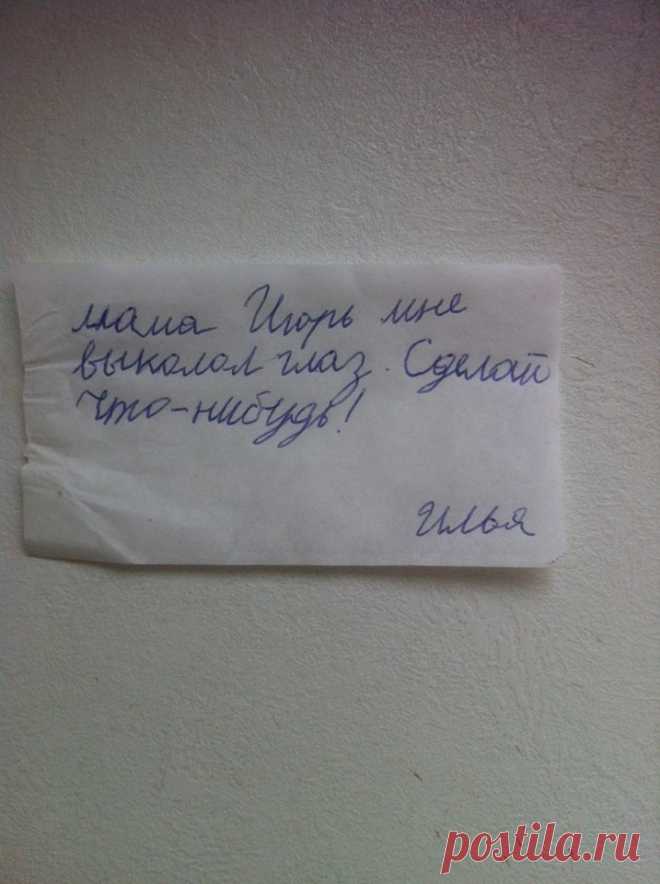 мама Игорь мне
выколол глаз. Сделай
что-нибудь!
Илья
postila.ru